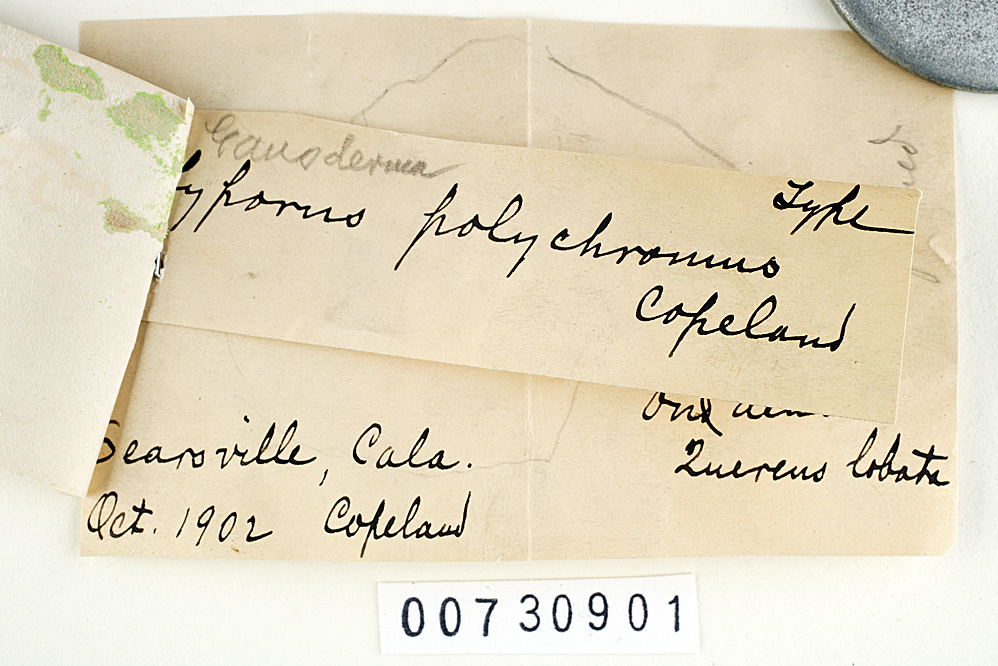 Ganoderma
yporus polychromus
Type
Copeland
On
Searsville, Cala.
Quercus lobata
Oct. 1902 Copeland
00730901